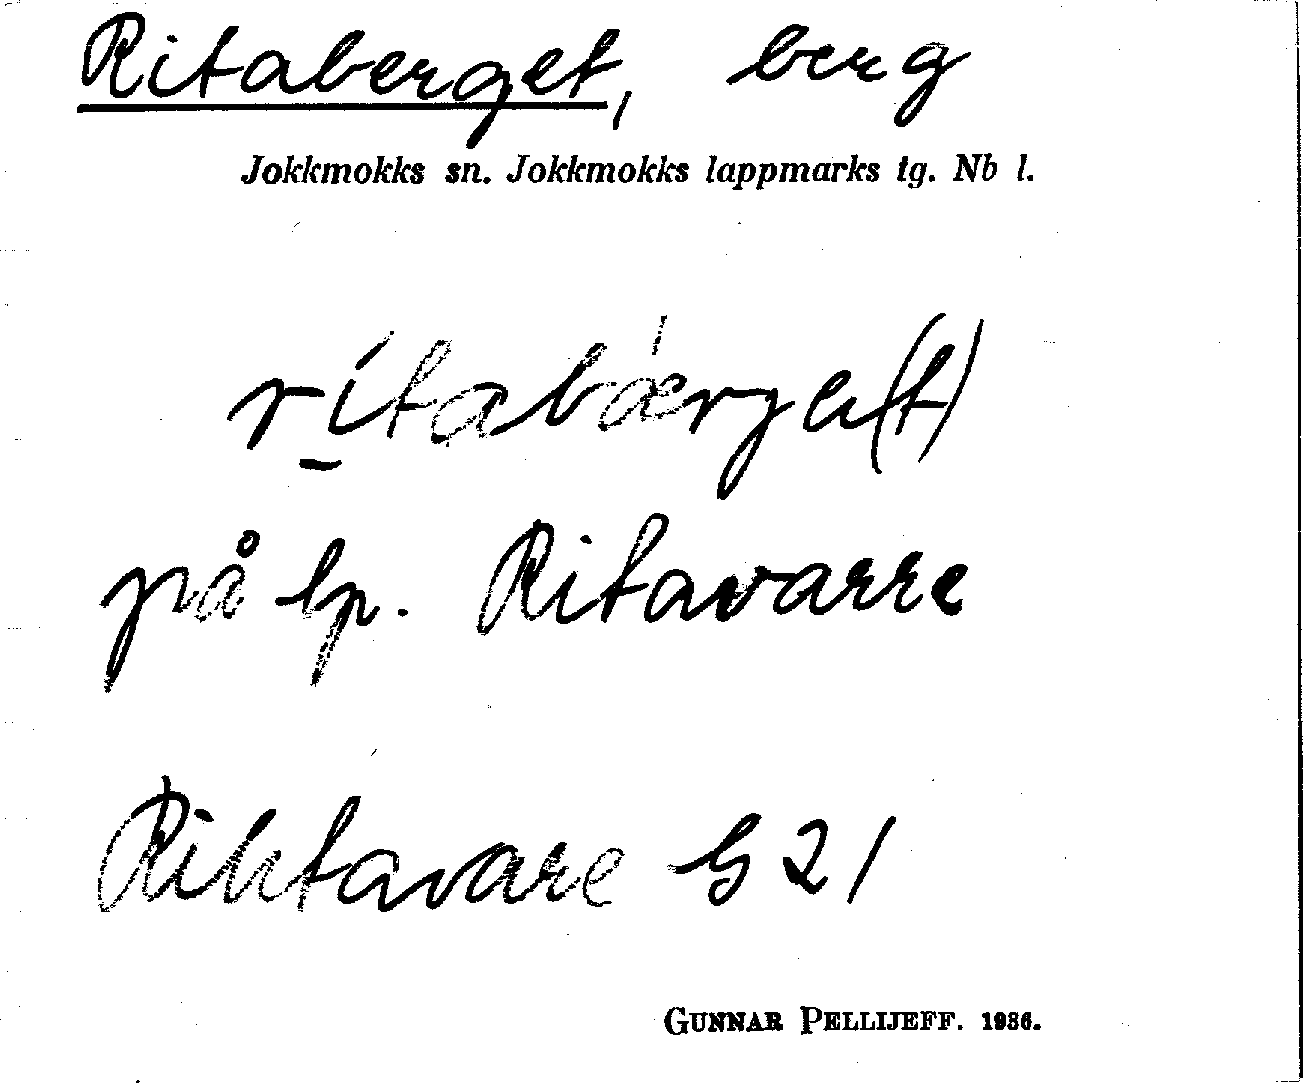 Ritaberget, berg
Jokkmokks sn. Jokkmokks lappmarks tg. Nb l.
rí̱tabǽrge(t)
på lp. Ritavarre
Rihtavare G 21
GUNNAR PELLIJEFF. 1936.